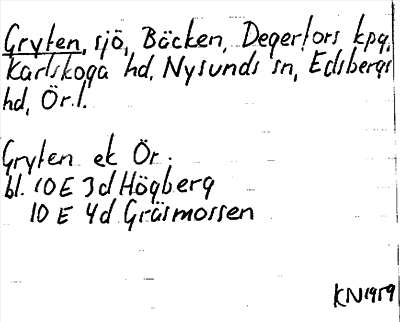 Gryten, sjö, Bäcken, Degerfors kpg,
Karlskoga hd, Nysunds sn, Edsbergs
hd, Ör.l.
Gryten ek Ör.
bl. 10 E 3 d Högberg
10 E 4 d Gräsmossen
KN 1959